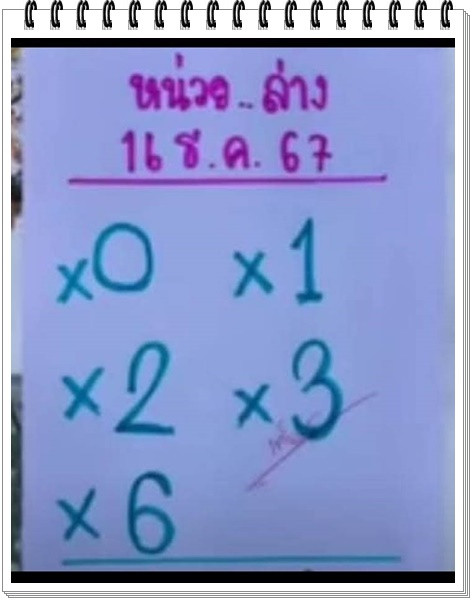 หน่วย..ล่าง
16 ธ.ค. 67
x0 x1
x2 x3
x6